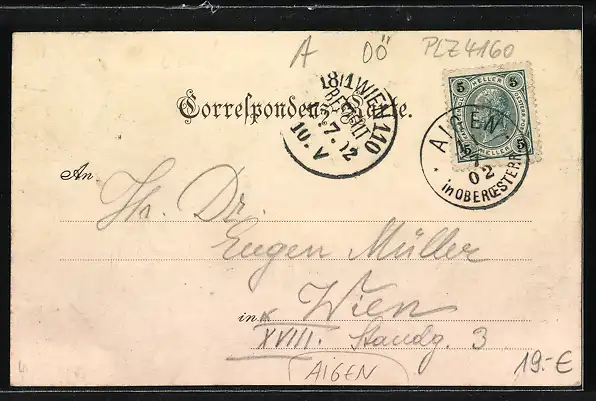 A OÖ PLZ4160
5 HELLER 5
Correspondenz-Karte.
18/1 WIEN 110
BESTELLT
2.7.02
10.V
AIGEN
02
in OBEROESTERR.
5 5
An
Hr. Dr.
Eugen Müller
in Wien
XVIII. Standg. 3
AIGEN
19.-€